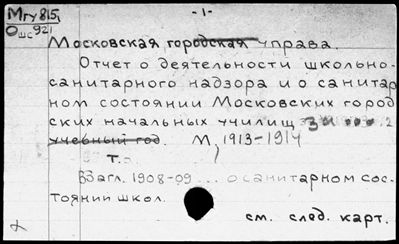 Мгу 815,
Ошс 921
-1-
Московская городская управа.
Отчет о деятельности школьно-
санитарного надзора и о санитар
ном состоянии Московских город
ских начальных училищ за
учебный год. М., 1913-1914
т.
Загл. 1908-09... о санитарном сос-
тоянии школ.
см. след. карт.